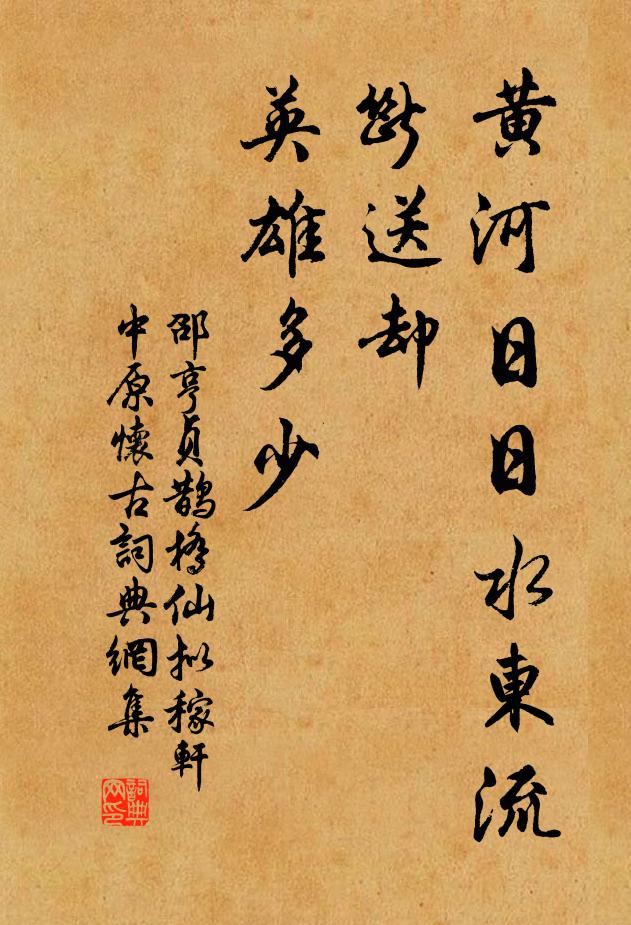 黃河日日水東流
斷送却
英雄多少
邵亨貞鵲橋仙擬稼軒
中原懷古詞典網集
詞典
网印